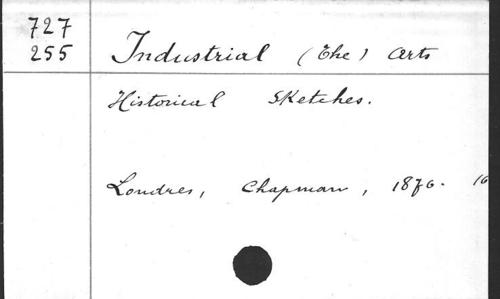 727
255
Industrial (The) Arts
Historical Sketches.
Londres, Chapman, 1876. 16